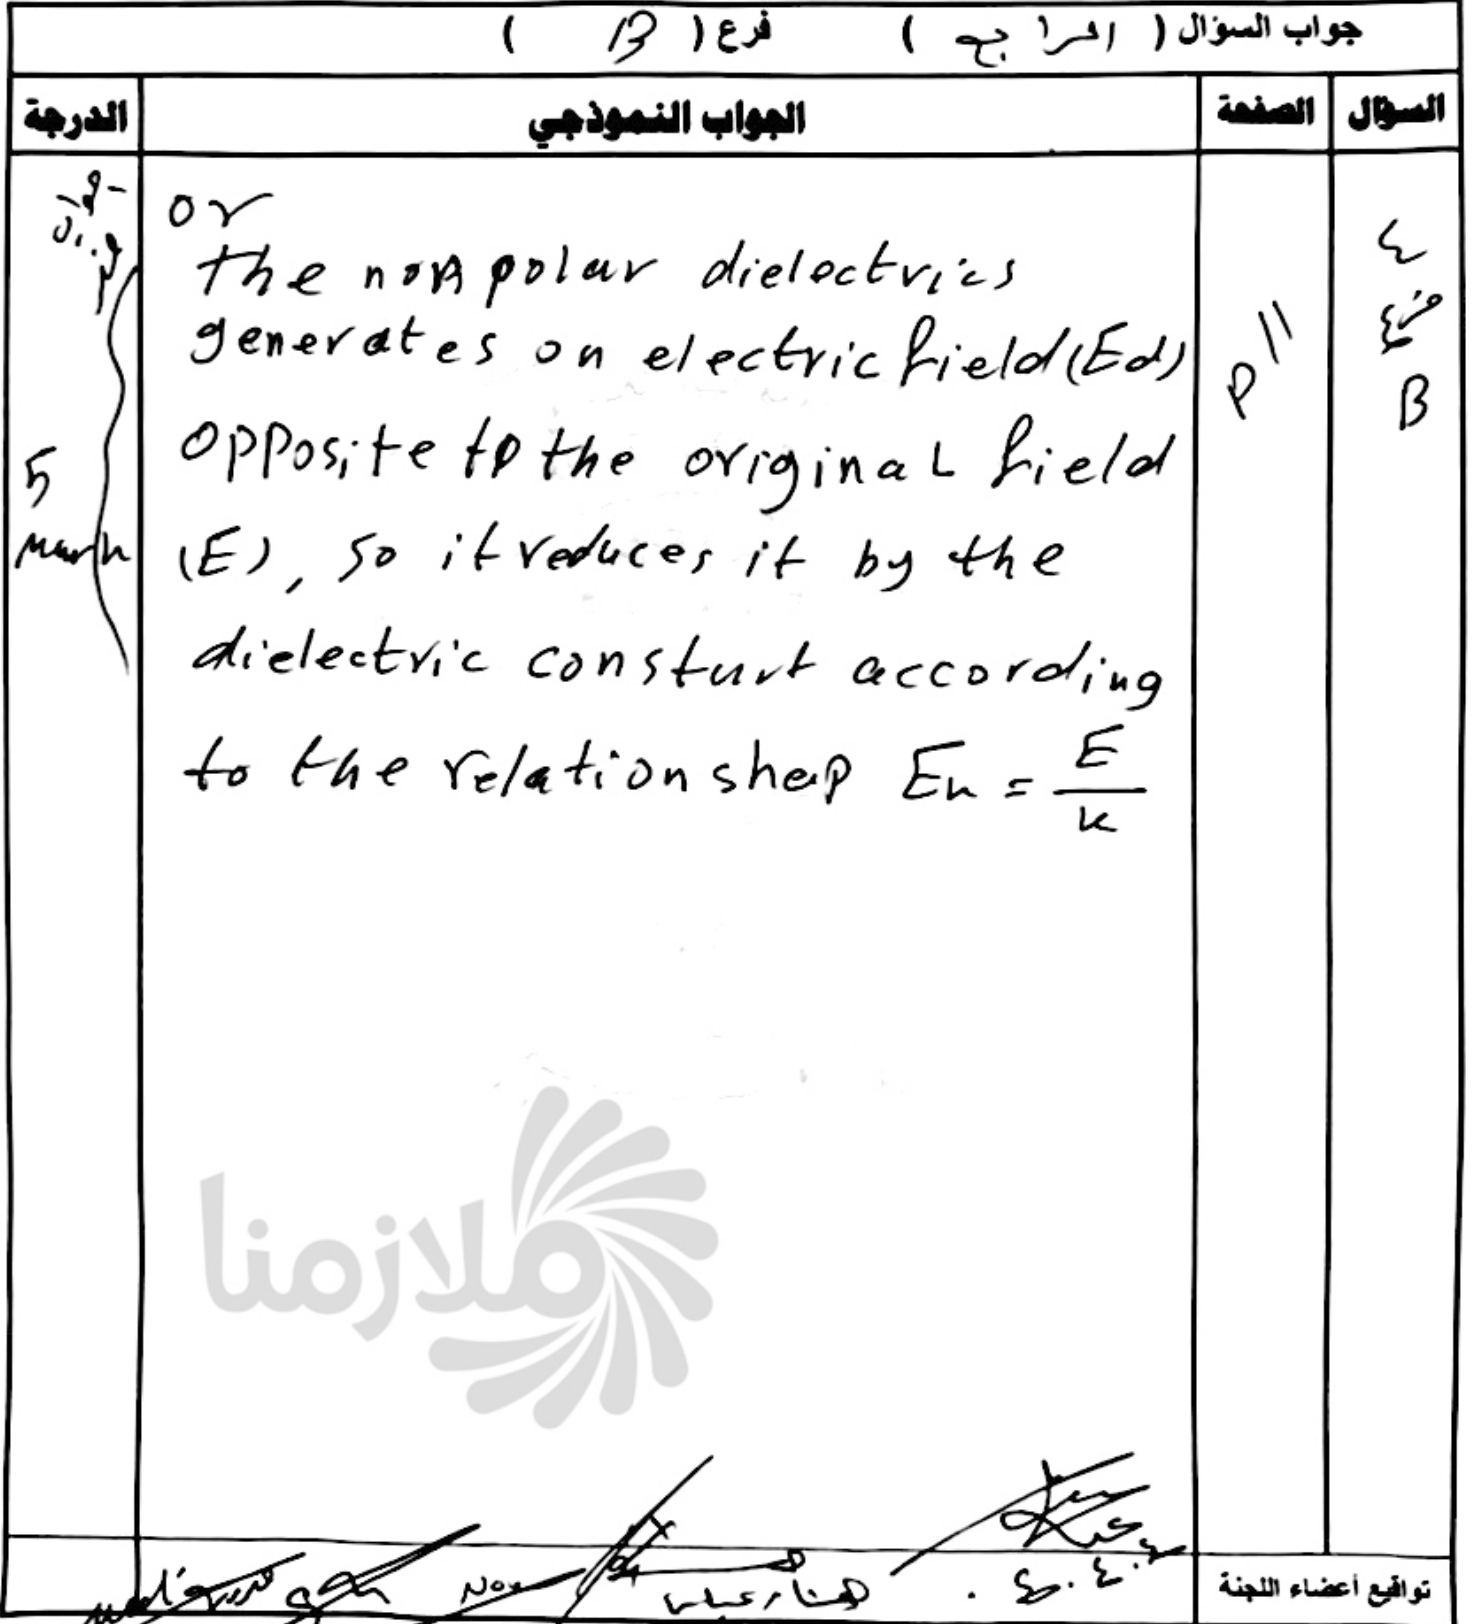 جواب السؤال ( الرابع ) فرع ( B )
السؤال الصفحة الجواب النموذجي الدرجة
or
the non polar dielectrics
generates on electric field (Ed)
opposite to the original field
(E), so it reduces it by the
dielectric constant according
to the relationshep Ek = E/k
5
mark
P11
٤
فرع
B
ملازمنا
تواقيع أعضاء اللجنة